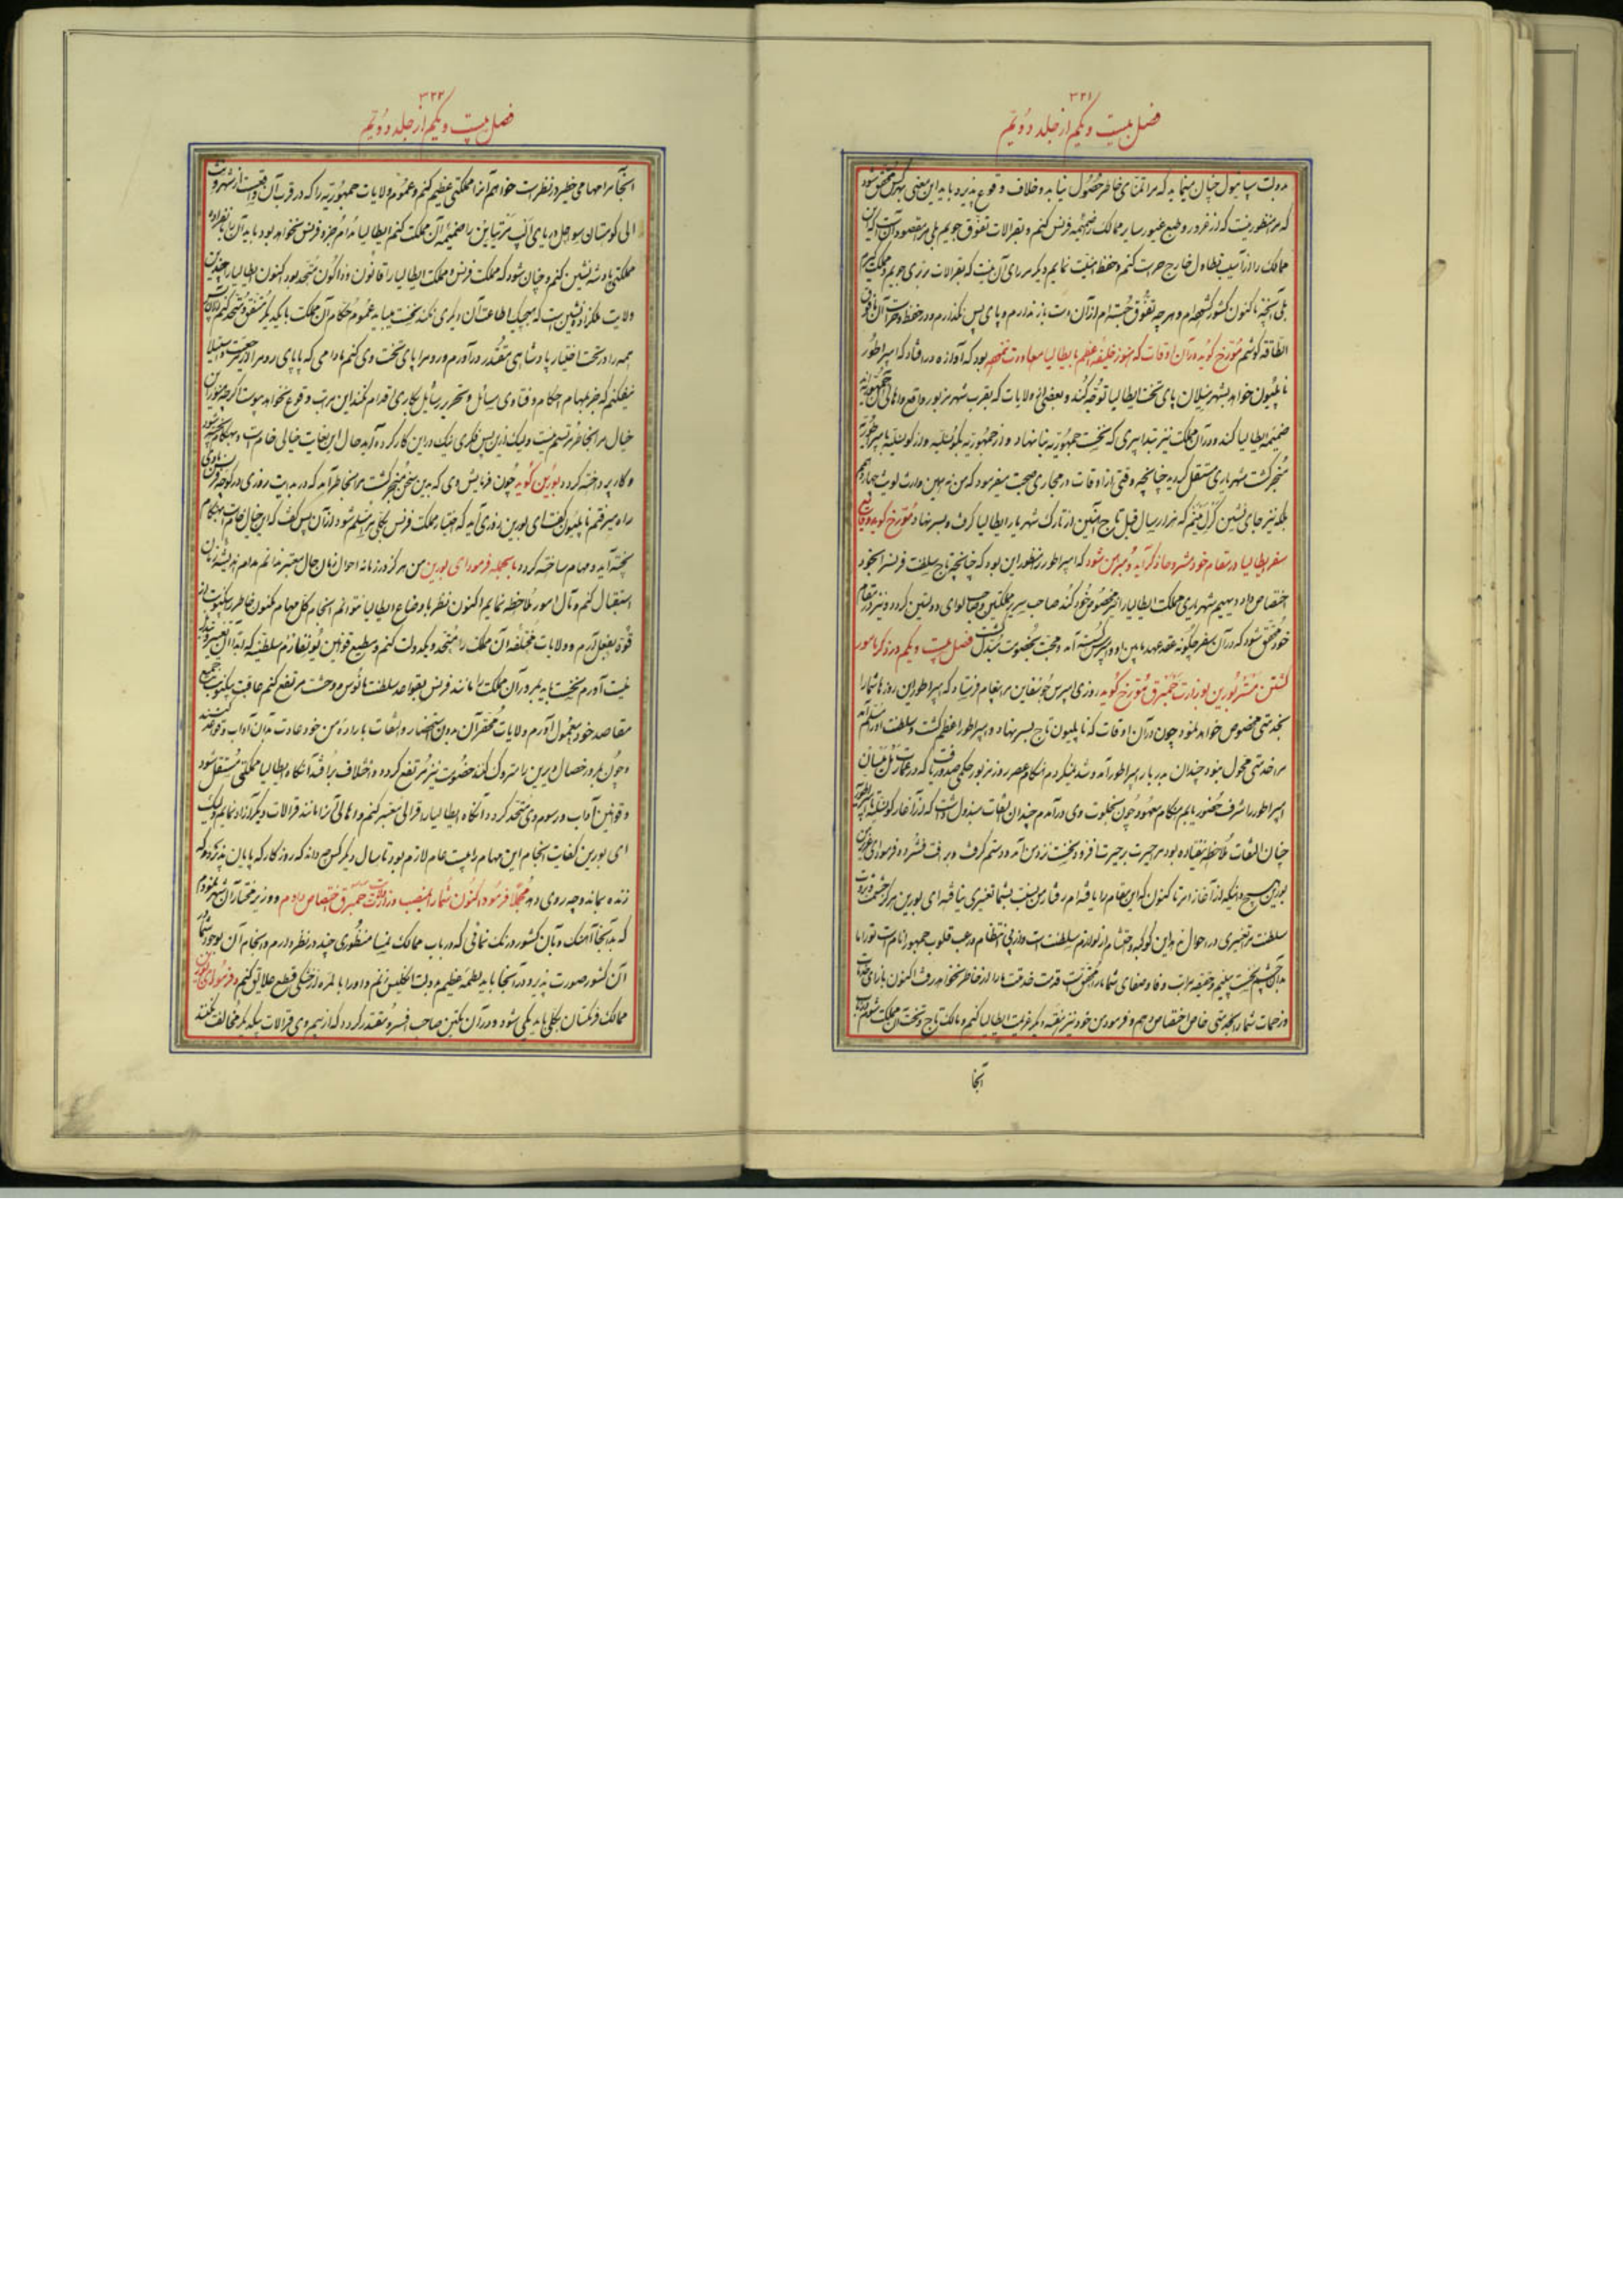 ۳۲۱
فصل بیست و یکم از جلد دویم
بدولت سپانیول چنان مینماید که مرا تمنای خاطر حصول نیابد و خلاف وقوع پذیرد باید این معنی بهرکس محقق شود
که مرا منظور نیست که از غرور و طبع غیور سایر ممالک ضمیمه فرنس کنم و بقرالات تفوق جویم بلی مرا مقصود آنست که این
ممالک را از آسیب تطاول خارج حراست کنم و حفظ امنیت نمایم دیگر مرا رای آن نیست که بقرالات برتری جویم و مملکت گیرم
بلی آنچه تاکنون کشور گشوده‌ام و هرچه تفوق جسته‌ام از آن دست باز ندارم و پای پس نگذارم و در حفظ و حراست آن
الطاقه کوشم مورخ گوید در آن اوقات که هنوز خلیفه اعظم بایطالیا معاودت بود که آوازه در افتاد که امپراطور
ناپلیون خواهد بشهر میلان پای تخت ایطالیا توجه کند و بعضی از ولایات که بقرب شهر مزبور واقع و اهالی آن
ضمیمه ایطالیا کند و در آن مملکت نیز تدابیری که نخست جمهوریه بنا نهاد و از جمهوریه بکونسلیه و از کونسلیه بامپراطوریه
منجر گشت شهریاری مستقل گردد چنانچه وقتی از اوقات در مجاری صحبت میفرمود که من نه همین وارث لویت چهاردهم
بلکه نیز جای نشین که هزار سال قبل تاج آهنین از تارک شهریار ایطالیا گرفت و بسر نهاد مورخ گوید
سفر ایطالیا در مقام خود مشروحا ذکر آید و مبرهن شود که امپراطور را منظور این بود که چنانچه تاج سلطنت فرنس را بخود
اختصاص داد دیهیم شهریاری مملکت ایطالیا را نیز مخصوص خود کند صاحب سریر مملکتین و صاحب لوای دولتین گردد و نیز در مقام
خود محقق شود که در آن سفر چگونه عقد عهد مابین او و گسسته آمد و محبت بخصومت مبدل گشت فصل بیست و یکم در ذکر مامور
گشتن مستر بورین بوزارت همبرق مورخ گوید روزی امپرس جوزفین مرا پیغام فرستاد که امپراطور این روزها شما را
بخدمتی مخصوص خواهد نمود چون در آن اوقات که ناپلیون تاج بسر نهاد و امپراطور اعظم گشت و سلطنت او را مسلم آمد
مرا خدمتی محول نبود چندان بدربار امپراطور آمد و شد نمیکردم هنگام عصر روز مزبور حکمی صدور یافت که در عمارت
امپراطور را شرف حضور یابم هنگام معهود چون بخلوت وی درآمدم چندان التفات مبذول داشت که از آغاز کونسلیه
چنان التفات ملاحظه نیفتاده بود مرا حیرت بر حیرت افزود نخست نزد من آمد و دستم گرفت و برافت فشرد و فرمود ای
بورین هیچ دانی که از آغاز امر تاکنون که این مقام را یافته‌ام رفتار من نسبت بشما تغییری نیافته ای بورین هرگز حشمت
سلطنت مرا تغییری در احوال نداد این کوکبه و احتشام از لوازم سلطنت است و از پی انتظام و رعب قلوب جمهور انام است تو را ما
بدان چشم نخست بینیم و حقیقه مراتب وفا و صفای شما مرا محقق است قدمت خدمت ما را از خاطر نخواهد رفت اکنون ما را رای
و زحمات شما را بخدمتی خاص اختصاص دهم و فرمود من خود نیز مرتبه دیگر عزیمت ایطالیا کنم و مالک تاج و تخت آن مملکت شوم
آنجا
۳۲۲
فصل بیست و یکم از جلد دویم
آنجا مرا مهامی خطیر در نظر است خواهم آنرا مملکتی عظیم کنم و عموم ولایات جمهوریه را که در قرب آن واقعست از شهر
الی کوهستان سواحل دریای را ضمیمه آن مملکت کنم ایطالیا مدام جزو فرنس نخواهد بود باید آن نیز بانفراده
مملکتی پادشه نشین کنم و چنان شود که مملکت فرنس و مملکت ایطالیا را قانون متحد بود اکنون ایطالیا را چندین
ولایت ملکزاده نشین است که هیچیک اطاعت آن دیگری نکند نخست میباید عموم حکام آن مملکت با یکدیگر متفق و متحد کنم
همه را در تحت اختیار پادشاهی مقتدر درآورم و روم را پای تخت وی کنم مادامی که پاپای روم را از جمعیت و استیلا
نیفکنم که جز بمهام احکام و فتاوی مسائل و تحریر رسایل بکاری اقدام نکند این مراتب وقوع نخواهد پیوست اگر چه هنوز این
خیال مرا بخاطر مرتسم نیست ولیک از این پس فکری نیک در این کار کرده آید حال این بغایت خیالی خام است و بهنگام پخته شود
و کار پرداخته گردد بورین گوید چون فرمایش وی که بدین سخن منجر گشت مرا بخاطر آمد که در بدایت روزی در کوچه
راه میرفتم ناپلیون گفت ای بورین روزی آید که اختیار مملکت فرنس بکلی مرا مسلم شود و از آن پس گفت که این خیال خام است بهنگام
پخته آید و مهام ساخته گردد بالجمله فرمود ای بورین من هرگز در زمانه احوال زمان حال معتبر ندانم مدام اندیشه زمان
استقبال کنم و مآل امور ملاحظه نمایم اکنون نظر باوضاع ایطالیا نتوانم انجام کل مهام مکنون خاطر را بیکنوبت از
قوه بفعل آرم و ولایات مختلفه آن مملکت را متحد و یکدولت کنم و مطیع قوانین سلطنتی که بدانها تغییر
نیست آورم نخست باید بمرور آن مملکت را مانند فرنس بقواعد سلطنت مانوس و وحشت مرتفع کنم عاقبت بیکنوبت جمیع
مقاصد خود بمعمول آورم ولایات محقر آن بدون استحضار و التفات باراده من خود عادت بدان آداب و قواعد کنند
و چون بمرور خصال دیرین را متروک کنند خصومت نیز مرتفع گردد و اختلاف برافتد آنگاه ایطالیا مملکتی مستقل شود
و قوانین آداب و رسوم وی متحد گردد آنگاه ایطالیا را قرالی معتبر کنم و اهالی آنرا مانند قرالات دیگر آزاد نمایم ولیک
ای بورین کفایت انجام این مهام را بیست عام لازم بود تا سال دیگر کس چه داند که روزگار که پایان پذیرد و که
زنده بماند و چه روی دهد مجملا فرمود اکنون شما را بمنصب وزارت همبرق اختصاص دادم و وزیر مختار آن شهر نمودم
که بدانجا آهنگ و بآن کشور درنگ نمائی که در باب ممالک نمیسا منظوری چند در نظر دارم و انجام آن بوجود شما در
آن کشور صورت پذیرد و در آنجا باید لطمه عظیم بدولت انگلیس زنم و او را بالمره از خشکی قطع علایق کنم و فرمود ای بورین
ممالک فرنگستان بکلی باید یکی شود و در آن یکتن صاحب افسر و مقتدر گردد که از بیم وی قرالات بیکدیگر مخالفت نکنند